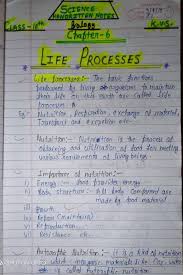 SCIENCE
HANDWRITTEN NOTES
CLASS-10th
Biology
R.W.S.
Chapter-6
LIFE PROCESSES
Life processes:- The basic functions
performed by living organisms to maintain
their life on this earth are called life
processes.
Eg:- Nutrition, Respiration, exchange of material,
Transport and excretion etc.
Nutrition:- Nutrition is the process of
obtaining and utilisation of food for meeting
various requirements of living beings.
Importance of nutrition:-
i) Energy:- food provides energy
ii) Body structure:- All body components are
made by food material
iii) Growth
iv) Repair
v) Reproduction
vi) Resistance etc.
Autotrophic Nutrition:- It is a kind of nutrition
in which inorganic materials like
called autotrophic nutrition